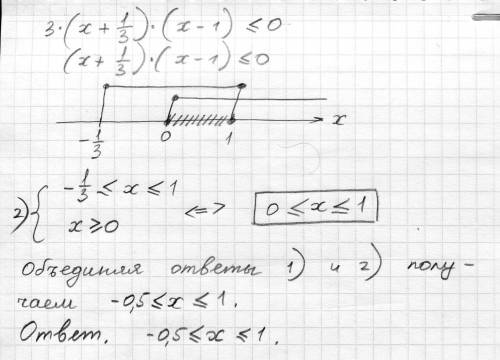 3·(x + 1/3)·(x − 1) ≤ 0
(x + 1/3)·(x − 1) ≤ 0
−1/3 0 1 x
2) { −1/3 ≤ x ≤ 1
x ≥ 0 <=> 0 ≤ x ≤ 1
Объединяя ответы 1) и 2) полу-
чаем −0,5 ≤ x ≤ 1.
Ответ. −0,5 ≤ x ≤ 1.